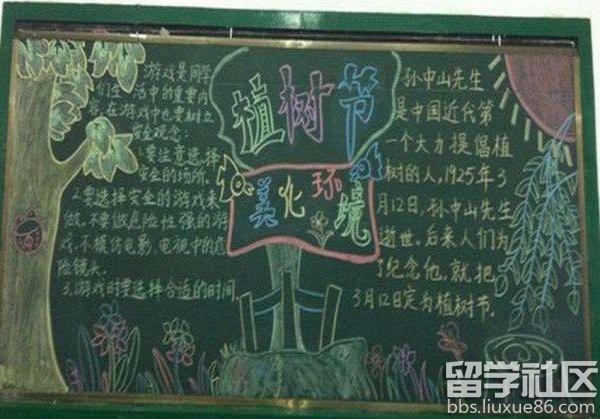 游戏是同学
们生活中的重要内
容,在游戏中也要树立
安全观念:
1.要注意选择
安全的场所。
2.要选择安全的游戏来
做,不要做危险性强的游
戏,不模仿电影,电视中的危
险镜头。
3.游戏时要选择合适的时间。
植树节
美化环境
孙中山先生
是中国近代第
一个大力提倡植
树的人,1925年3
月12日,孙中山先生
逝世。后来人们为
了纪念他,就把
3月12日定为植树节。
留学社区
bbs.liuxue86.com